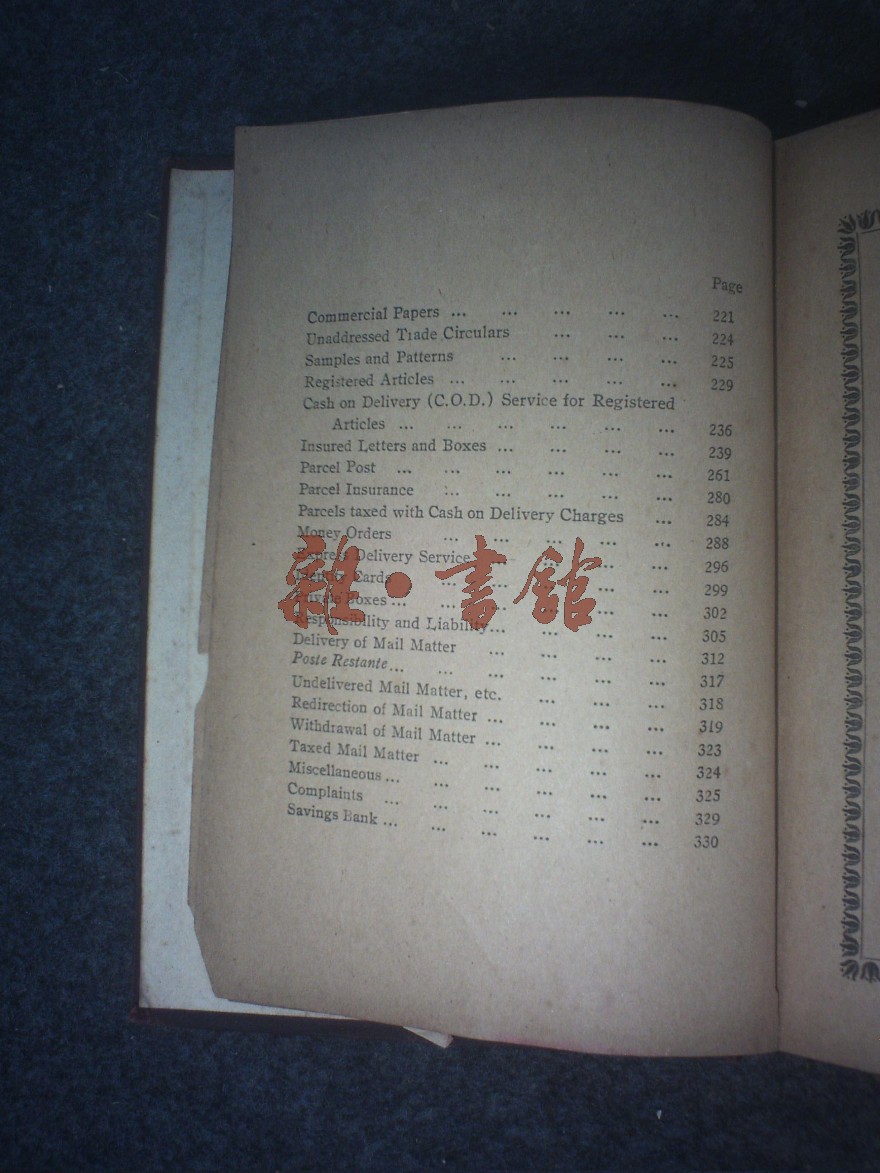 Page
Commercial Papers ... ... ... ... ... 221
Unaddressed Trade Circulars ... ... ... 224
Samples and Patterns ... ... ... ... 225
Registered Articles ... ... ... ... ... 229
Cash on Delivery (C.O.D.) Service for Registered
Articles ... ... ... ... ... ... 236
Insured Letters and Boxes ... ... ... ... 239
Parcel Post ... ... ... ... ... ... 261
Parcel Insurance ... ... ... ... ... 280
Parcels taxed with Cash on Delivery Charges ... 284
Money Orders ... ... ... ... ... 288
Express Delivery Service ... ... ... ... 296
Identity Cards ... ... ... ... ... 299
Private Boxes ... ... ... ... ... ... 302
Responsibility and Liability... ... ... ... 305
Delivery of Mail Matter ... ... ... ... 312
Poste Restante... ... ... ... ... ... 317
Undelivered Mail Matter, etc. ... ... ... 318
Redirection of Mail Matter ... ... ... ... 319
Withdrawal of Mail Matter ... ... ... ... 323
Taxed Mail Matter ... ... ... ... ... 324
Miscellaneous ... ... ... ... ... ... 325
Complaints ... ... ... ... ... ... 329
Savings Bank ... ... ... ... ... ... 330
雜·書館